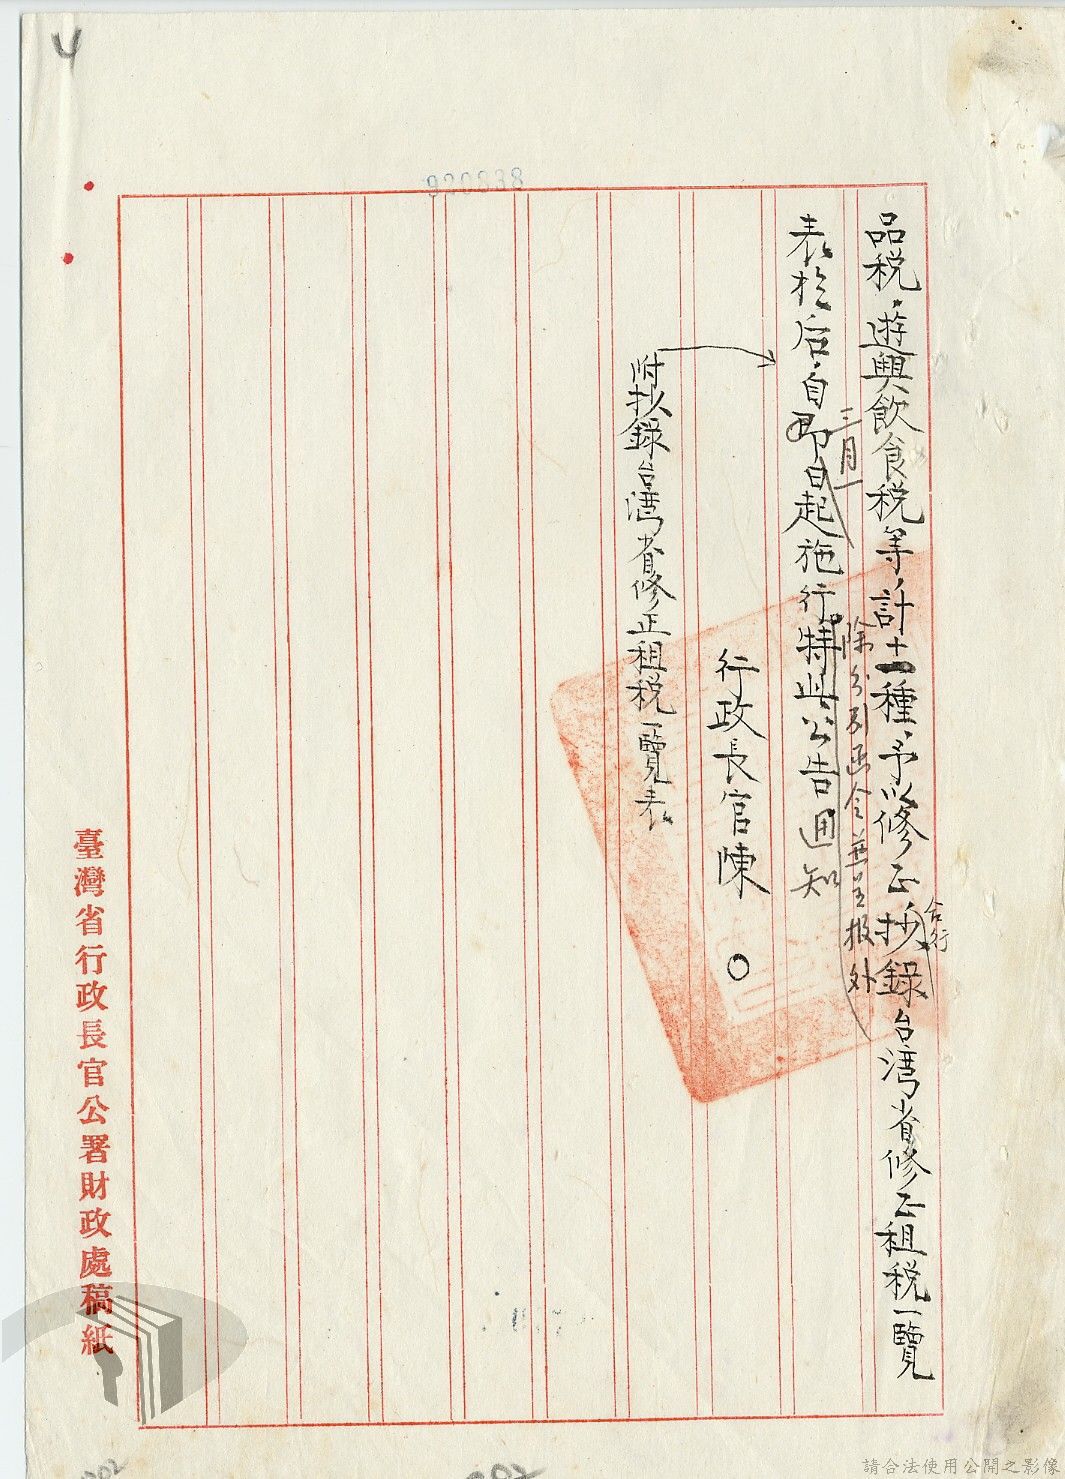 品税、遊興飲食税等、計十一種、予以修正、抄錄台湾省修正租税一覽
合行
除分別函令並呈报外
三月一
表於后、自即日起施行。特此公告週知
行政長官陳 〇
附抄錄台湾省修正租税一覽表
臺灣省行政長官公署財政處稿紙
920838
202
請合法使用公開之影像